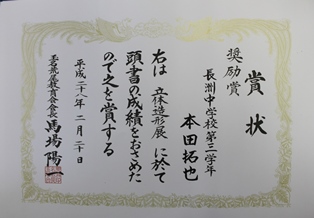 賞状
奨励賞
長洲中学校第三学年
本田拓也
右は 立体造形展 に於て
頭書の成績をおさめた
ので之を賞する
平成二十八年 二月 二十日
玉名荒尾教育会会長 馬場陽一